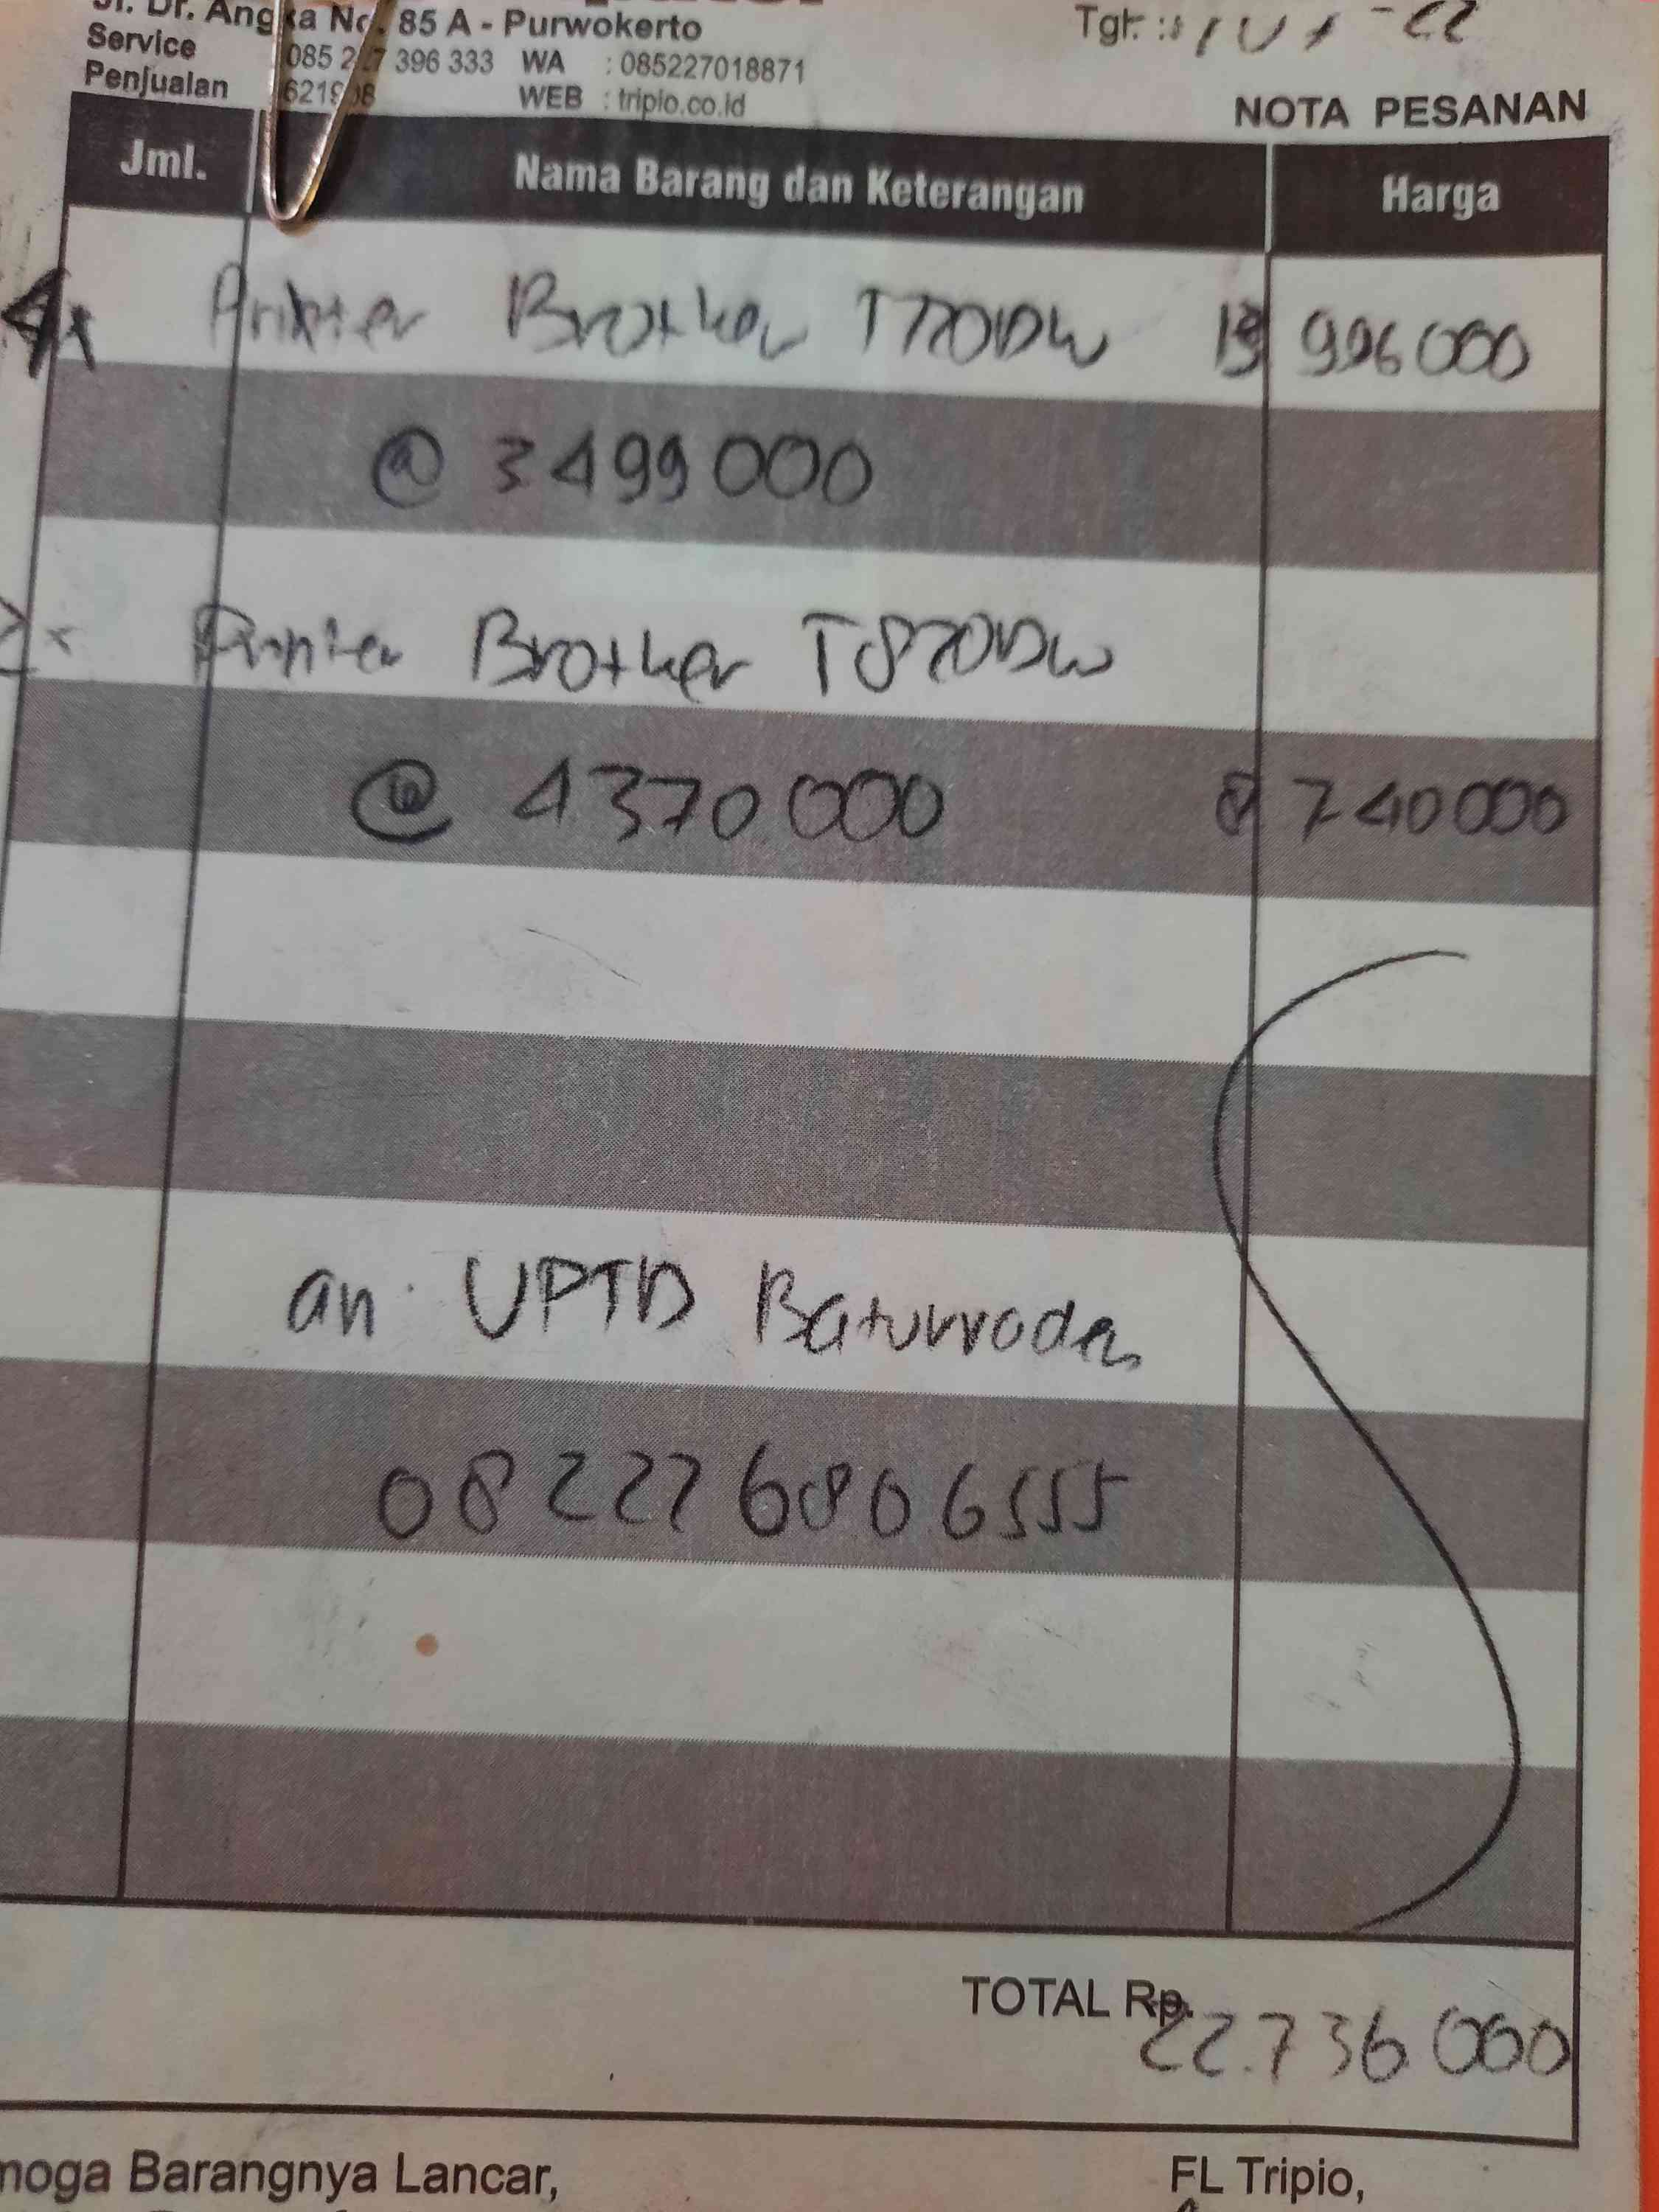 Jl. Dr. Angka No. 85 A - Purwokerto
Tgl. :
Service 085 227 396 333 WA : 085227018871
Penjualan WEB : tripio.co.id
NOTA PESANAN
Jml. Nama Barang dan Keterangan Harga
4x Printer Brother T720DW 13 996 000
@ 3 499 000
2x Printer Brother T820DW
@ 4 370 000 8 740 000
an. UPTD Baturraden
082276806555
TOTAL Rp. 22.736 000
moga Barangnya Lancar,
FL Tripio,